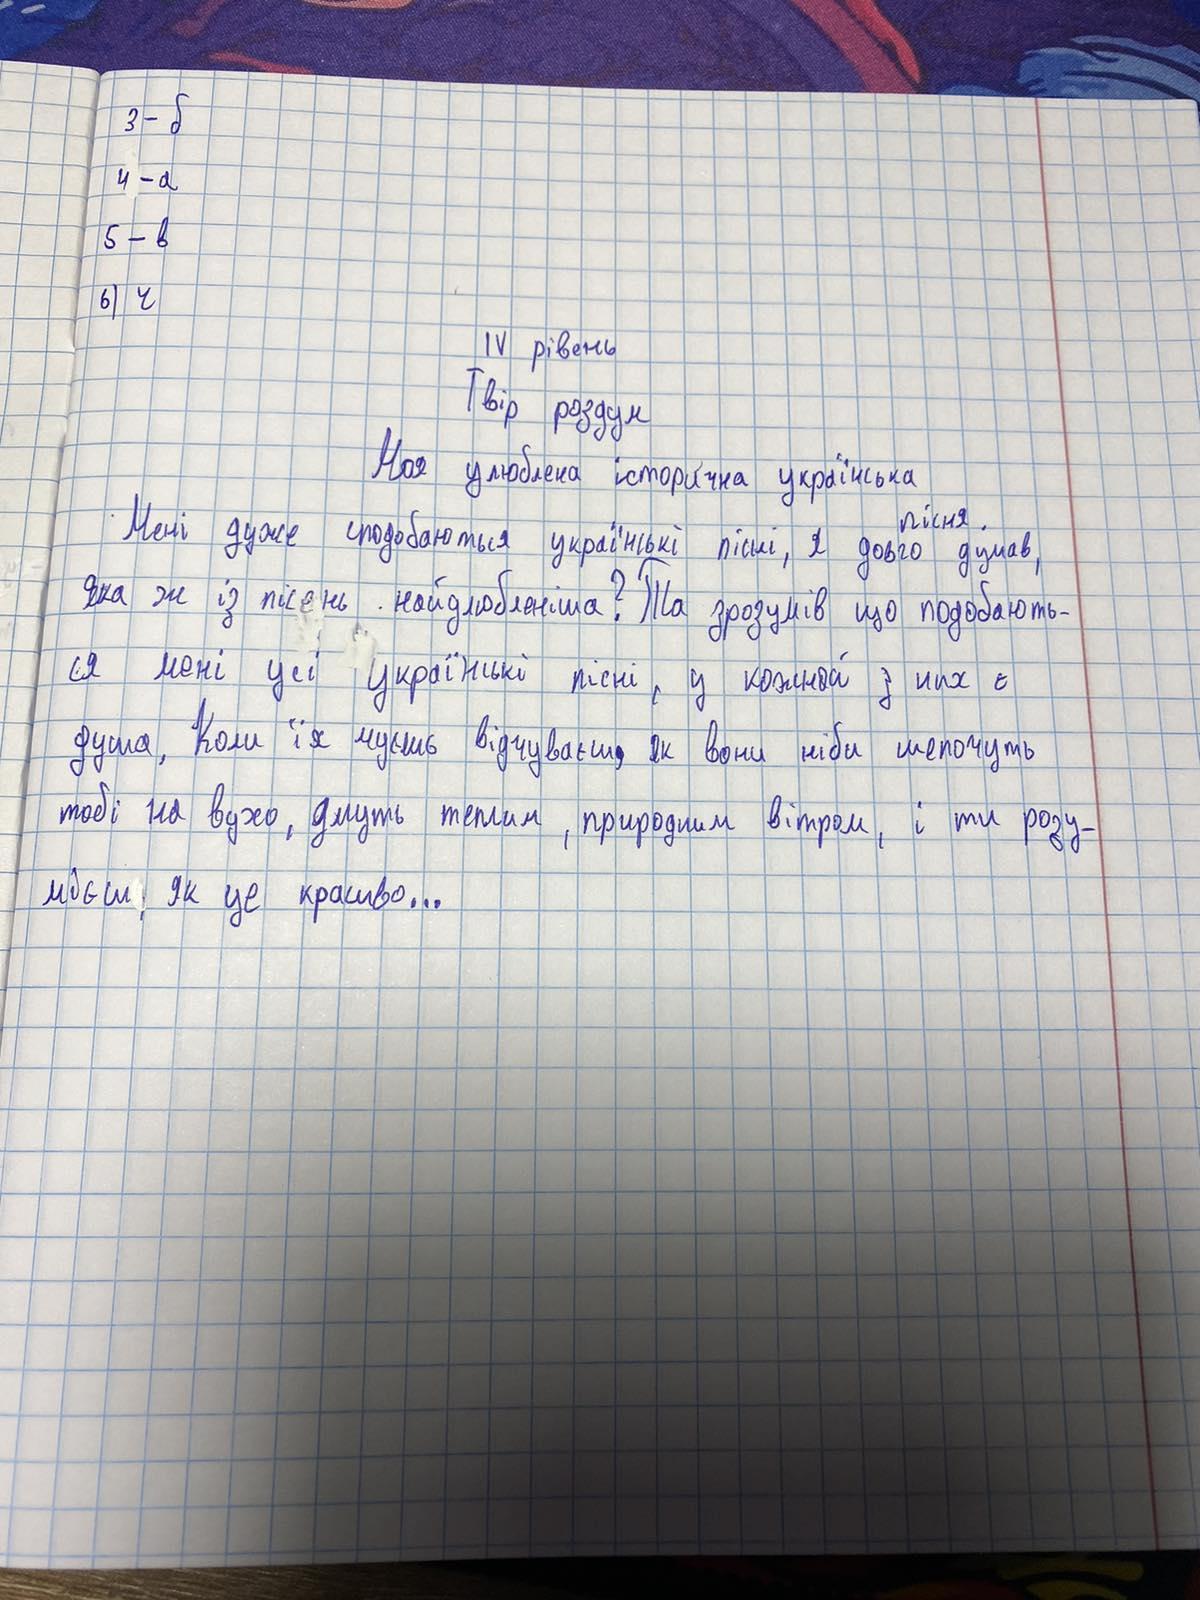 3 - б
4 - а
5 - в
6) Ч
IV рівень
Твір роздум
Моя улюблена історична українська
пісня.
Мені дуже сподобаються українські пісні, я довго думав,
яка ж із пісень найулюбленіша? Та зрозумів що подобають-
ся мені усі українські пісні, у кожной з них є
душа, Коли їх чуєшь відчуваєш, як вони ніби шепочуть
тобі на вухо, дмуть теплим, природним вітром, і ти розу-
мієш, як це красиво...